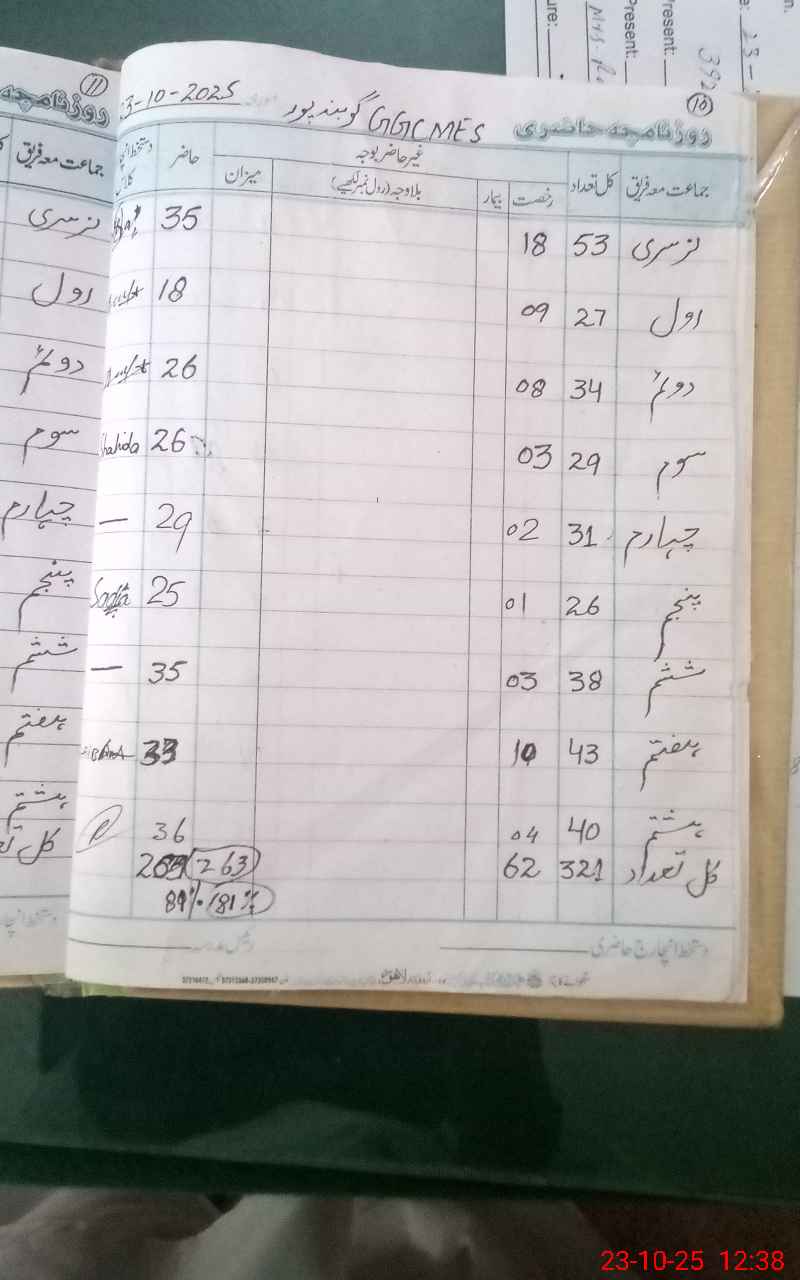 روزنامچہ حاضری GGCMES گوبندپور 23-10-2025
10
جماعت معہ فریق کل تعداد غیر حاضر بوجہ حاضر دستخط انچارج کلاس
رخصت بیمار بلاوجہ (رول نمبر لکھیے) میزان
نرسری 53 18 35
اول 27 09 18
دوئم 34 08 26
سوم 29 03 26 Shahida
چہارم 31 02 29 —
پنجم 26 01 25 Sadia
ششم 38 03 35 —
ہفتم 43 10 33
ہشتم 40 04 36
کل تعداد 321 62 263
81%
دستخط انچارج حاضری
11
روزنامچہ
جماعت معہ فریق
نرسری
اول
دوئم
سوم
چہارم
پنجم
ششم
ہفتم
ہشتم
کل
Present:
Present:
392
23-10-25 12:38